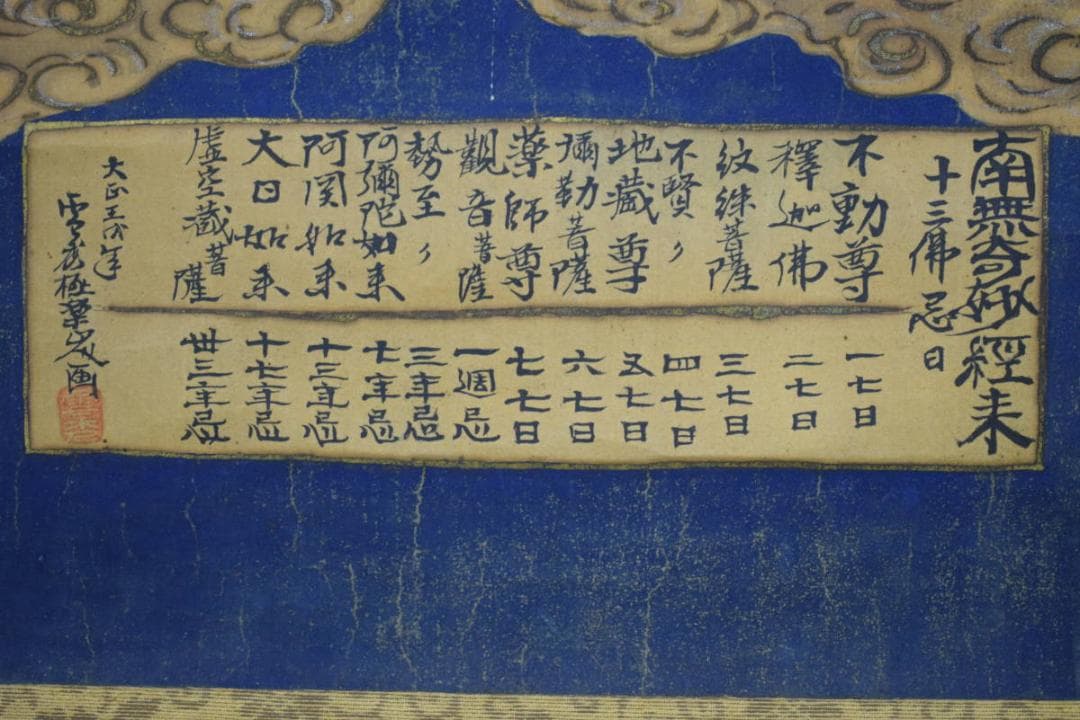 南無奇妙經来
十三佛忌日
不動尊 一七日
釋迦佛 二七日
菩薩 三七日
不賢〃 四七日
地藏尊 五七日
彌勒菩薩 六七日
薬師尊 七七日
觀音菩薩 一週忌
勢至〃 三年忌
阿彌陀如来 七年忌
阿関如来 十三年忌
大日如来 十七年忌
虚空藏菩薩 卅三年忌
大正年